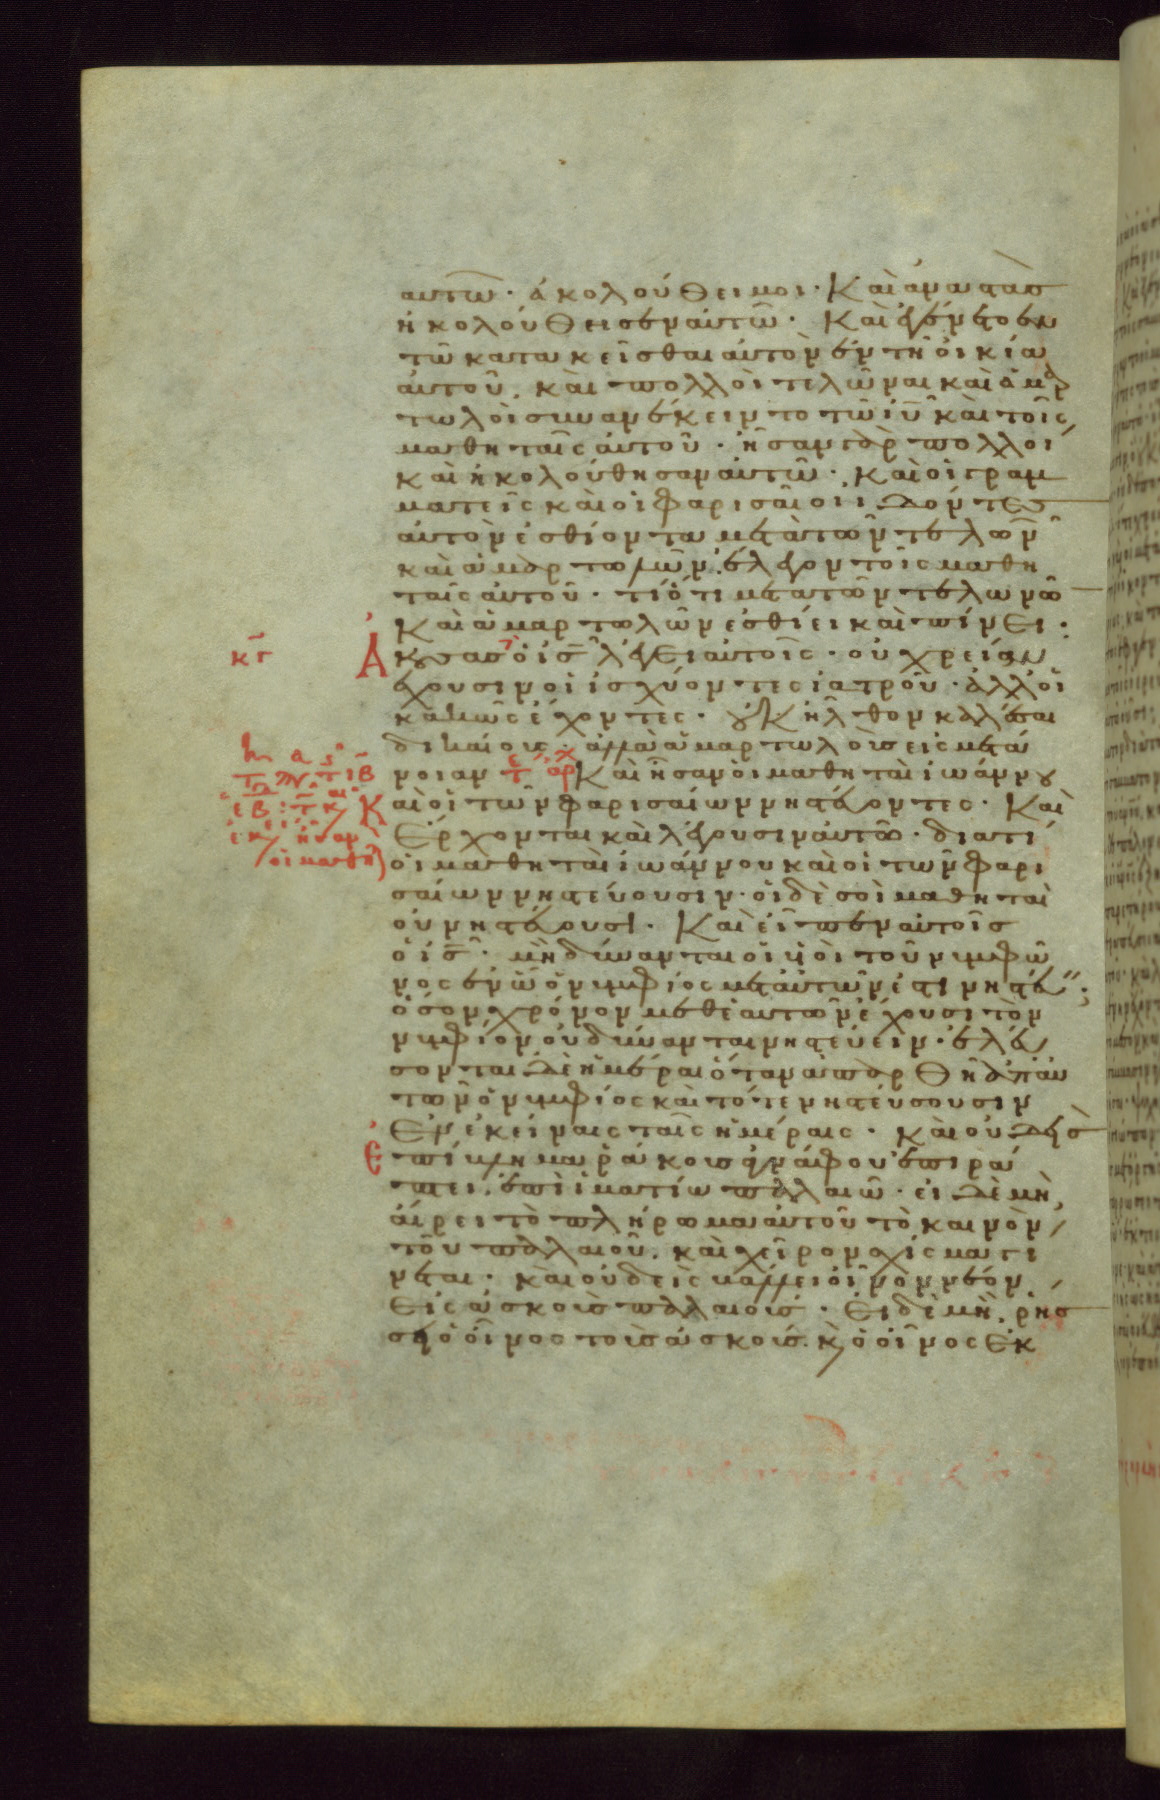 αυτω · ἀκολούθει μοι · Καὶ ἀναστὰσ
ἠκολούθησεν αὐτῶ · Καὶ ἐγένετο ἐν
τῶ κατακεῖσθαι αὐτὸν ἐν τῆ οἰκία
αὐτοῦ. καὶ πολλοὶ τελῶναι καὶ ἁμαρ
τωλοὶ συνανέκειντο τῶ ιῦ καὶ τοῖς
μαθηταῖς αὐτοῦ · ἦσαν γὰρ πολλοί
καὶ ἠκολούθησαν αὐτῶ · καὶ οἱ γραμ
ματεῖς καὶ οἱ φαρισαῖοι ιδόντεσ
αὐτὸν ἐσθίοντα μετὰ τῶν τελωνῶ
καὶ ἁμαρτωλῶν. ἔλεγον τοῖς μαθη
ταῖς αὐτοῦ · τί ὅτι μετα τῶν τελωνῶ
Καὶ ἁμαρτωλῶν ἐσθίει καὶ πίνει ·
κγ Ἀκουσασ ὁ ισ λέγει αὐτοῖς · οὐ χρείαν
ἔχουσιν οἱ ἰσχύοντες ἰατροῦ · ἀλλ οἱ
κακῶς ἔχοντες · οὐκ ἦλθον καλέσαι
δικαίους · ἀλλὰ ἁμαρτωλοὺσ εἰς μετά
νοιαν Καὶ ἦσαν οἱ μαθηταὶ ἰωάννου
Καὶ οἱ τῶν φαρισαίων νηστεύοντες · Καὶ
Ἔρχονται καὶ λέγουσιν αὐτῶ · διατί
οἱ μαθηταὶ ἰωάννου καὶ οἱ τῶν φαρι
σαίων νηστεύουσιν · οἱ δὲ σοὶ μαθηταὶ
οὐ νηστεύουσι · Καὶ εἶπεν αὐτοῖσ
ὁ ισ · μὴ δύνανται οἱ υἱοὶ τοῦ νυμφῶ
νος ἐν ᾧ ὁ νυμφίος μετ αὐτῶν ἐστι νηστεύειν;
ὅσον χρόνον μεθ ἑαυτῶν ἔχουσι τὸν
νυμφίον οὐ δύνανται νηστεύειν · ἐλεύ
σονται δὲ ἡμέραι ὅταν ἀπαρθῆ ἀπ αὐ
τῶν ὁ νυμφίος καὶ τότε νηστεύσουσιν
Ἐν ἐκείναις ταῖς ἡμέραις · καὶ οὐδεὶσ
Ἐπίβλημα ράκουσ ἀγνάφου ἐπιρά
πτει, ἐπὶ ἱματίω παλαιῶ · εἰ δὲ μὴ,
αἴρει τὸ πλήρωμα αὐτοῦ τὸ καινὸν,
τοῦ παλαιοῦ. καὶ χεῖρον σχίσμα γί
νεται · καὶ οὐδεὶς βάλλει οἶνον νέον,
Εἰς ἀσκοὺσ παλαιούσ · Ἐι δὲ μὴ, ρήσ
σει ὁ οἶνος τοὺσ ἀσκούσ. κ ὁ οἶνος Ἐκ